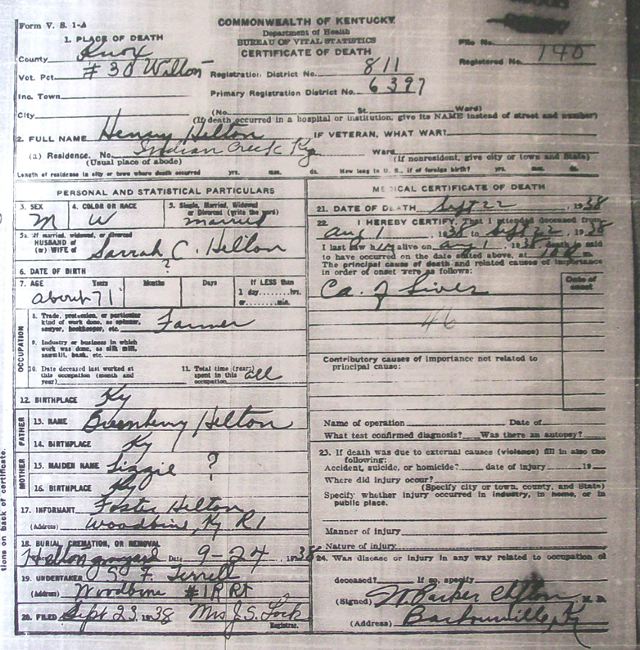 Form V. S. 1-A
COMMONWEALTH OF KENTUCKY
Department of Health
BUREAU OF VITAL STATISTICS
CERTIFICATE OF DEATH
1. PLACE OF DEATH
County Knox
Vot. Pct. #30 Wilton
Inc. Town
City
File No.
Registered No. 140
Registration District No. 811
Primary Registration District No. 6397
(No. St. Ward)
(If death occurred in a hospital or institution, give its NAME instead of street and number)
2. FULL NAME Henry Helton IF VETERAN, WHAT WAR?
(a) Residence. No. Indian Creek Ky Ward
(Usual place of abode) (If nonresident, give city or town and State)
Length of residence in city or town where death occurred yrs. mos. ds. How long in U. S., if of foreign birth? yrs. mos. ds.
PERSONAL AND STATISTICAL PARTICULARS
3. SEX M
4. COLOR OR RACE W
5. Single, Married, Widowed or Divorced (write the word) married
5a. If married, widowed, or divorced
HUSBAND of
(or) WIFE of Sarrah C. Helton
6. DATE OF BIRTH ?
7. AGE Years Months Days If LESS than
about 71 1 day......hrs.
or......min.
OCCUPATION
8. Trade, profession, or particular
kind of work done, as spinner,
sawyer, bookkeeper, etc. Farmer
9. Industry or business in which
work was done, as silk mill,
sawmill, bank, etc.
10. Date deceased last worked at
this occupation (month and
year)
11. Total time (years)
spent in this
occupation all
12. BIRTHPLACE Ky
FATHER
13. NAME Helton
14. BIRTHPLACE Ky
MOTHER
15. MAIDEN NAME Lizzie ?
16. BIRTHPLACE Ky
17. INFORMANT Foster Helton
(Address) Woodbine, Ky R1
18. BURIAL, CREMATION, OR REMOVAL
Helton graveyard Date 9-24 1938
19. UNDERTAKER F. Terrell
(Address) Woodbine #1 R Rt
20. FILED Sept 23, 1938 Mrs J. S. Lock
Registrar.
MEDICAL CERTIFICATE OF DEATH
21. DATE OF DEATH Sept 22, 1938
22. I HEREBY CERTIFY, That I attended deceased from
Aug 1 1938 to Sept 22, 1938
I last saw him alive on Aug 1, 1938 death is said
to have occurred on the date stated above, at
The principal cause of death and related causes of importance
in order of onset were as follows:
Date of onset
Ca. of Liver
46
Contributory causes of importance not related to
principal cause:
Name of operation Date of
What test confirmed diagnosis? Was there an autopsy?
23. If death was due to external causes (violence) fill in also the
following:
Accident, suicide, or homicide? date of injury 19
Where did injury occur?
(Specify city or town, county, and State)
Specify whether injury occurred in industry, in home, or in
public place.
Manner of injury
Nature of injury
24. Was disease or injury in any way related to occupation of
deceased? If so, specify
(Signed) Parker M. D.
(Address) Barbourville, Ky
tions on back of certificate.